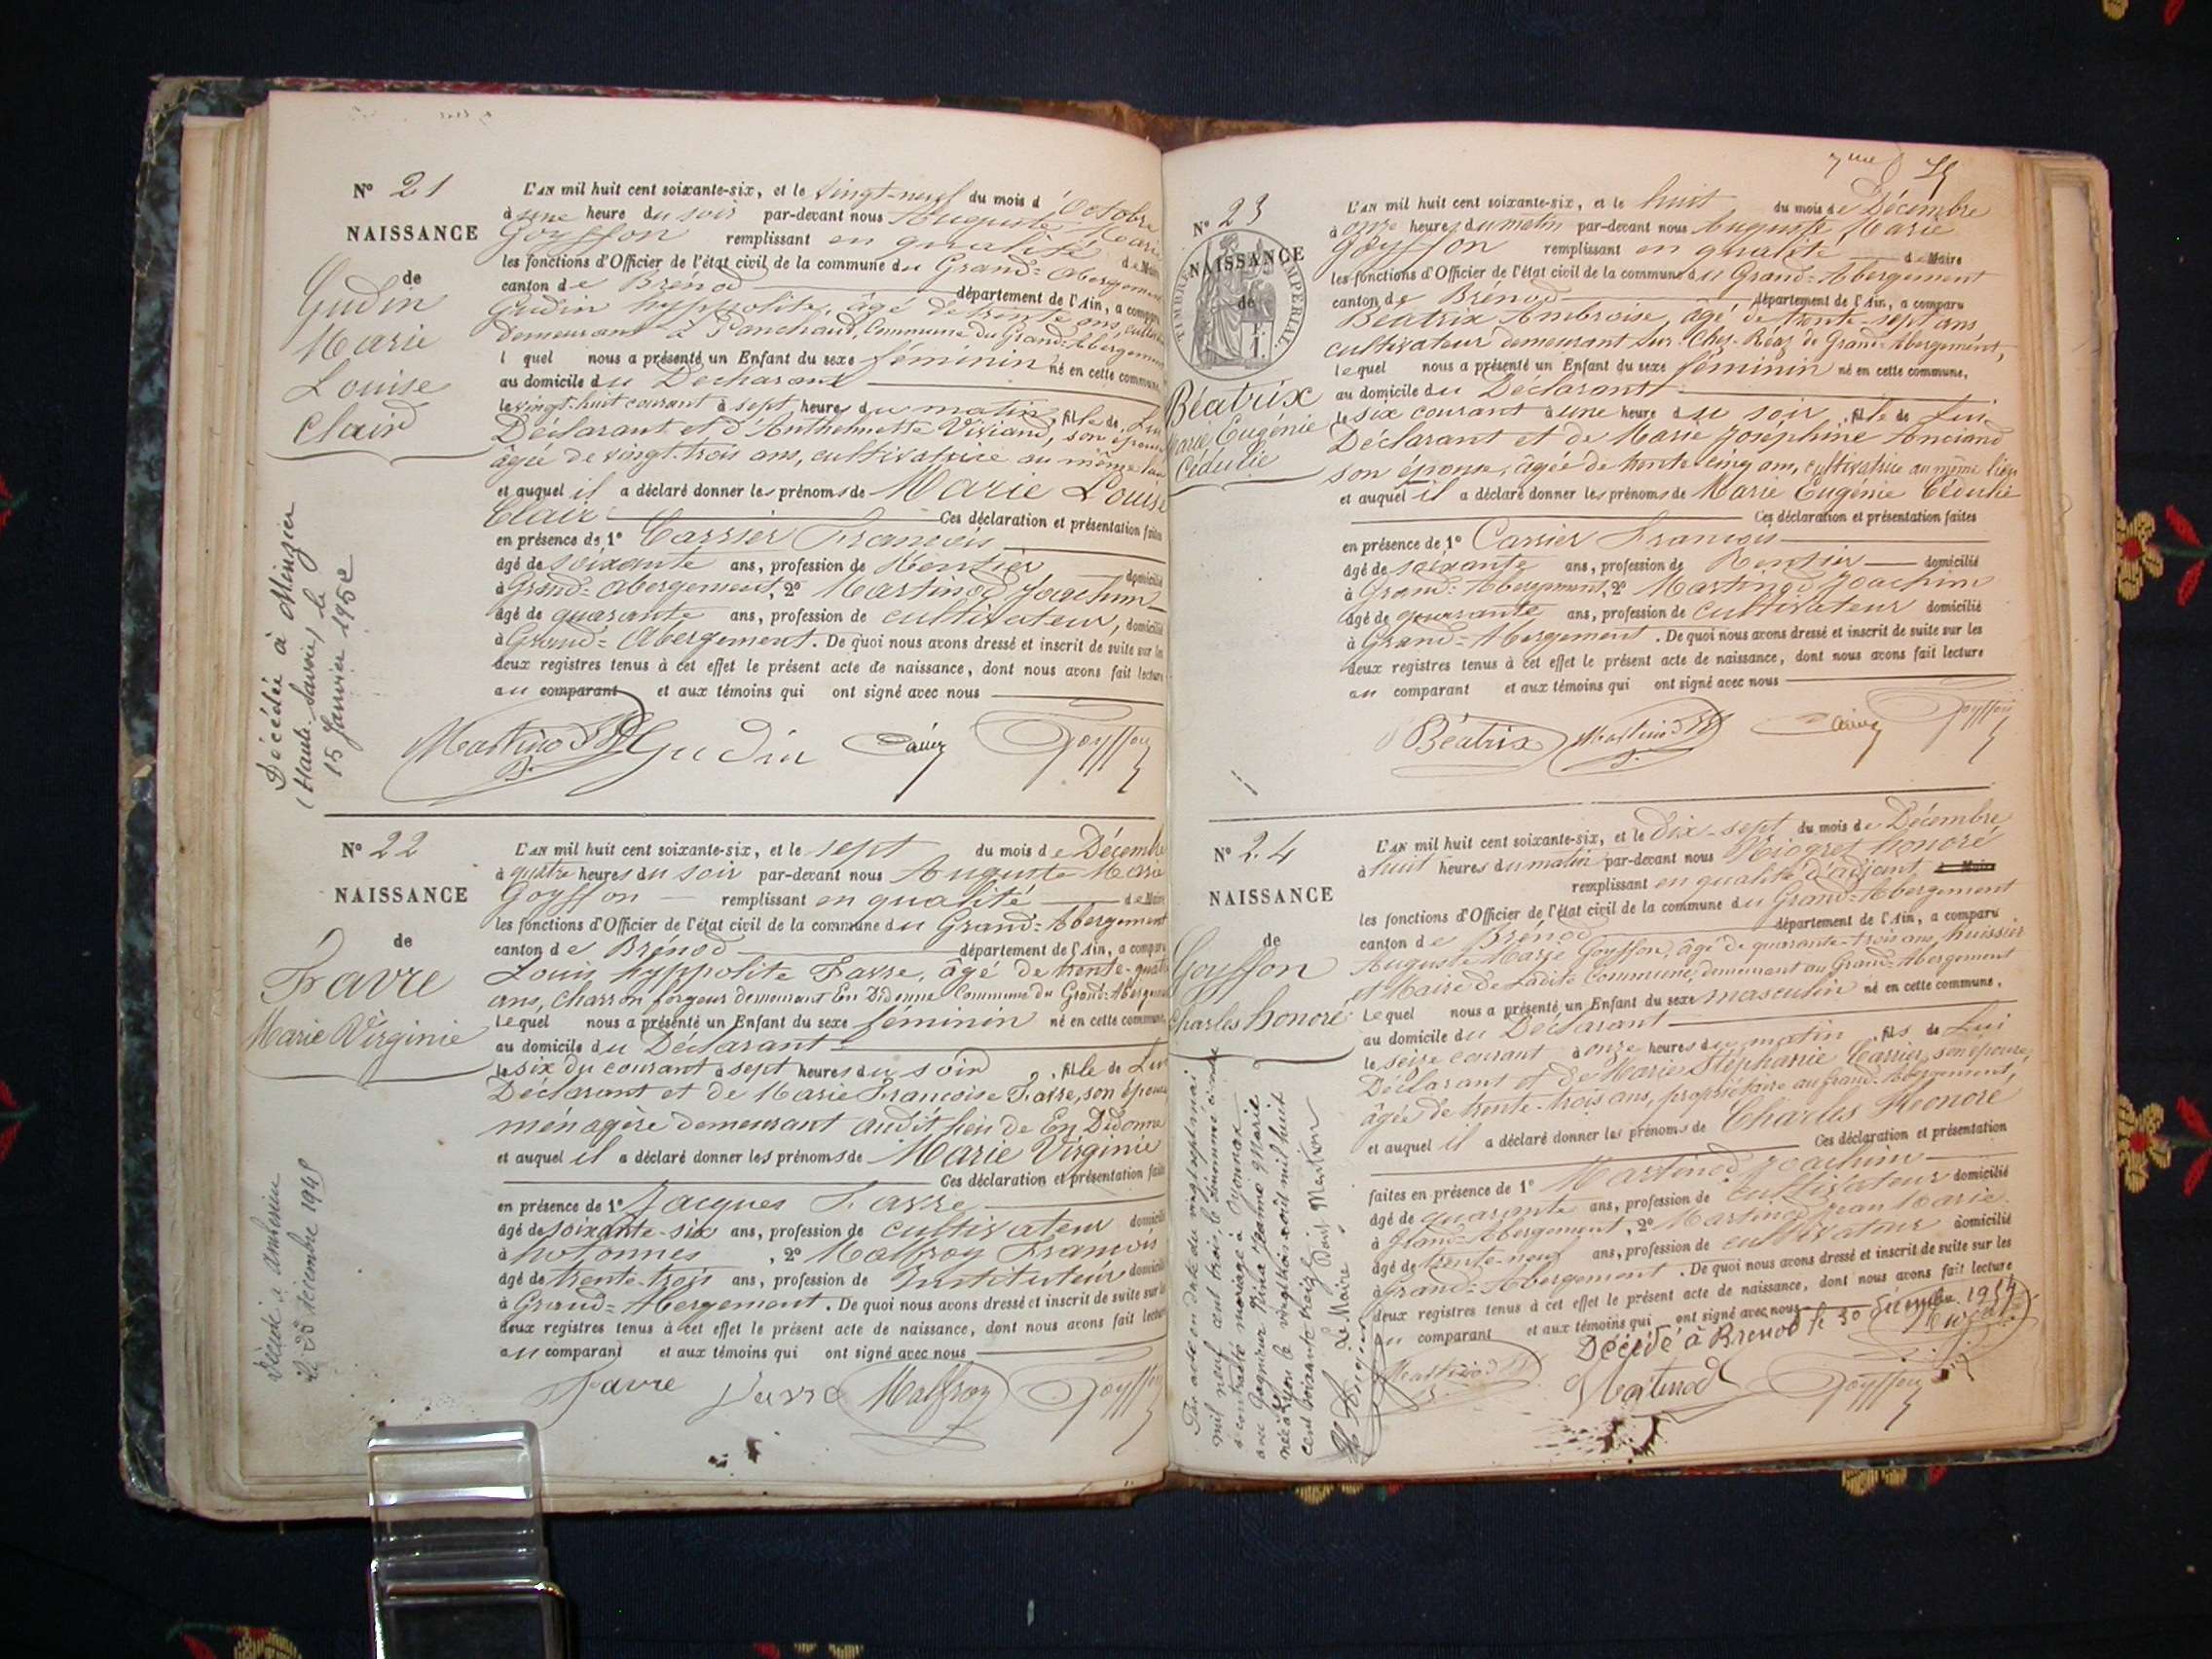 N° 21
NAISSANCE
de
Gudin
Marie
Louise
Clair
Décédée à Minzier
(Haute-Savoie) le
15 Janvier 195
L'AN mil huit cent soixante-six, et le vingt-neuf du mois d'Octobre
à une heure du soir par-devant nous Auguste Marie
Goyffon remplissant en qualité de Maire
les fonctions d'Officier de l'état civil de la commune du Grand-Abergement
canton de Brénod département de l'Ain, a comparu
Gudin hyppolite, âgé de trente ans, cultivateur
demeurant à Panchaud, Commune du Grand-Abergement
lequel nous a présenté un Enfant du sexe féminin né en cette commune,
au domicile du Déclarant
le vingt-huit courant à sept heures du matin, fille de Lui
Déclarant et d'Anthelmette Viviand, son épouse
âgée de vingt-trois ans, cultivatrice au même lieu
et auquel il a déclaré donner les prénoms de Marie Louise
Clair Ces déclaration et présentation faites
en présence de 1° Carrier François
âgé de soixante ans, profession de Rentier domicilié
à Grand-Abergement, 2° Martinod Joachim
âgé de quarante ans, profession de cultivateur, domicilié
à Grand-Abergement. De quoi nous avons dressé et inscrit de suite sur les
deux registres tenus à cet effet le présent acte de naissance, dont nous avons fait lecture
au comparant et aux témoins qui ont signé avec nous
Martinod Gudin Carrier Goyffon
N° 22
NAISSANCE
de
Favre
Marie Virginie
Décédé à Ambérieu
le décembre 194
L'AN mil huit cent soixante-six, et le sept du mois de Décembre
à quatre heures du soir par-devant nous Auguste Marie
Goyffon remplissant en qualité de Maire
les fonctions d'Officier de l'état civil de la commune du Grand-Abergement
canton de Brénod département de l'Ain, a comparu
Louis hyppolite Favre, âgé de trente-quatre
ans, Charron forgeur demeurant En Didonne Commune du Grand-Abergement
Lequel nous a présenté un Enfant du sexe féminin né en cette commune,
au domicile du Déclarant
le six du courant à sept heures du soir, fille de Lui
Déclarant et de Marie Françoise Favre, son épouse
ménagère demeurant audit lieu de En Didonne
et auquel il a déclaré donner les prénoms de Marie Virginie
Ces déclaration et présentation faites
en présence de 1° Jacques Favre
âgé de soixante-six ans, profession de cultivateur domicilié
à hotonnes, 2° Malfroy François
âgé de trente-trois ans, profession de Instituteur domicilié
à Grand-Abergement. De quoi nous avons dressé et inscrit de suite sur les
deux registres tenus à cet effet le présent acte de naissance, dont nous avons fait lecture
au comparant et aux témoins qui ont signé avec nous
Favre Favre Malfroy Goyffon
N° 23
NAISSANCE
de
TIMBRE IMPERIAL
Béatrix
Marie Eugénie
Cédulie
L'AN mil huit cent soixante-six, et le huit du mois de Décembre
à onze heures du matin par-devant nous Auguste Marie
Goyffon remplissant en qualité de Maire
les fonctions d'Officier de l'état civil de la commune du Grand-Abergement
canton de Brénod département de l'Ain, a comparu
Béatrix Ambroise, âgé de trente-sept ans
cultivateur demeurant sur Chez-Réaz de Grand-Abergement,
lequel nous a présenté un Enfant du sexe féminin né en cette commune,
au domicile du Déclarant
le six courant à une heure du soir, fille de Lui
Déclarant et de Marie Joséphine Anciand
son épouse, âgée de trente-cinq ans, cultivatrice au même lieu
et auquel il a déclaré donner les prénoms de Marie Eugénie Cédulie
Ces déclaration et présentation faites
en présence de 1° Carrier François
âgé de soixante ans, profession de Rentier domicilié
à Grand-Abergement, 2° Martinod Joachim
âgé de quarante ans, profession de cultivateur domicilié
à Grand-Abergement. De quoi nous avons dressé et inscrit de suite sur les
deux registres tenus à cet effet le présent acte de naissance, dont nous avons fait lecture
au comparant et aux témoins qui ont signé avec nous
Béatrix Martinod Carrier Goyffon
N° 24
NAISSANCE
de
Goyffon
Charles honoré
Par acte en date du vingt sept mai
mil neuf cent trois le dénommé ci-contre
a contracté mariage à Oyonnax
avec Gagnieur Nina Jeanne Marie
née à Lyon le vingt trois août mil huit
cent soixante treize
Le Maire
L'AN mil huit cent soixante-six, et le Dix-sept du mois de Décembre
à huit heures du matin par-devant nous Niogret honoré
remplissant en qualité d'adjoint de Maire
les fonctions d'Officier de l'état civil de la commune du Grand-Abergement
canton de Brénod département de l'Ain, a comparu
Auguste Marie Goyffon, âgé de quarante-trois ans, huissier
et Maire de Ladite Commune, demeurant au Grand-Abergement
Lequel nous a présenté un Enfant du sexe masculin né en cette commune,
au domicile du Déclarant
le seize courant à onze heures du matin, fils de Lui
Déclarant et de Marie Stéphanie Carrier, son épouse,
âgée de trente-trois ans, propriétaire au Grand-Abergement,
et auquel il a déclaré donner les prénoms de Charles Honoré
Ces déclaration et présentation
faites en présence de 1° Martinod Joachim
âgé de quarante ans, profession de cultivateur domicilié
à Grand-Abergement, 2° Martinod Jean Marie
âgé de trente-neuf ans, profession de cultivateur domicilié
à Grand-Abergement. De quoi nous avons dressé et inscrit de suite sur les
deux registres tenus à cet effet le présent acte de naissance, dont nous avons fait lecture
au comparant et aux témoins qui ont signé avec nous
Décédé à Brenod le 30 Décembre 1954
Martinod Martinod Goyffon Niogret